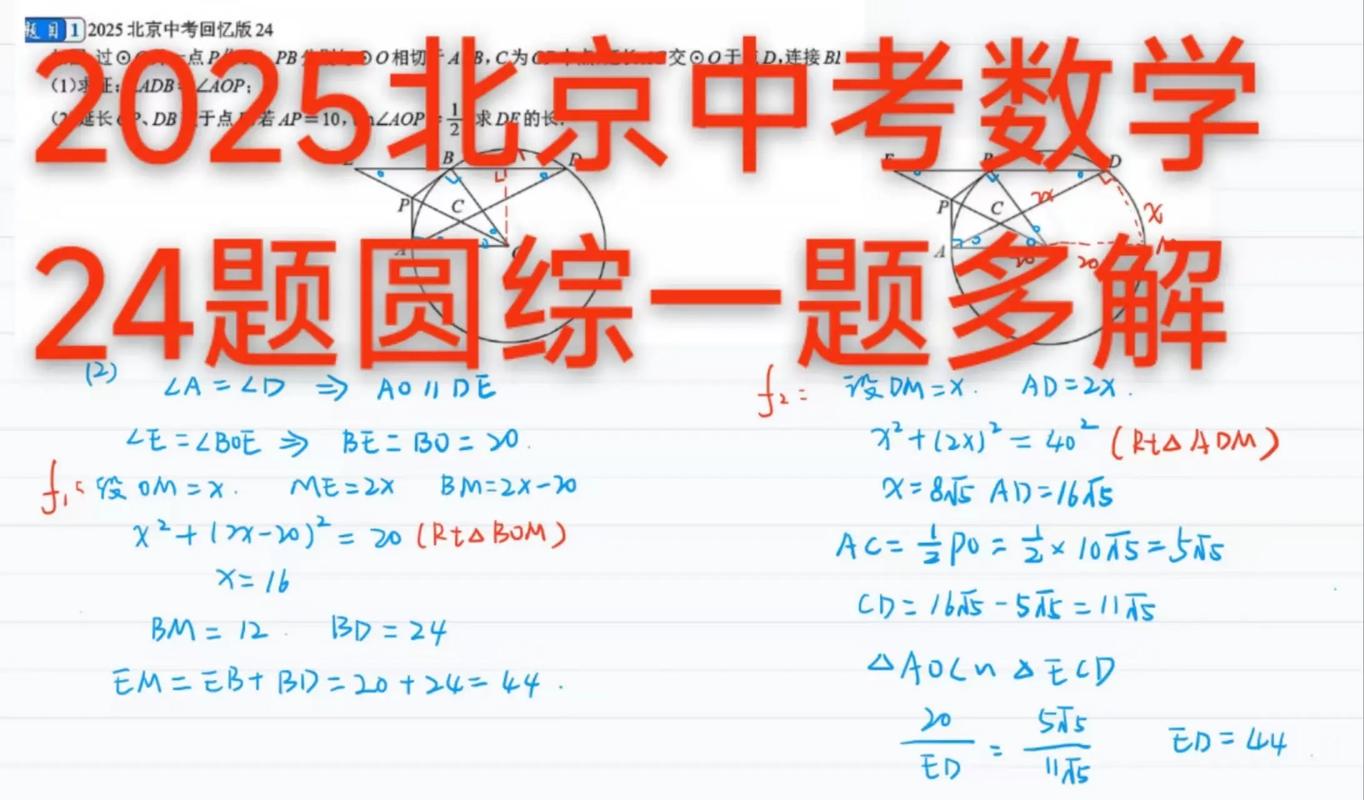 题目1 2025北京中考回忆版24
过⊙ 点P PB ⊙O相切于A B,C为 交⊙O于点D,连接B
(1)求证:∠ADB=∠AOP;
延长 P、DB 于点 若AP=10, ∠AOP=1/2 求DE的长.
2025北京中考数学
24题圆综一题多解
B D
P C
A
B D
P C x
A 2x
20 20
(2) ∠A=∠D ⇒ AO∥DE
∠E=∠BOE ⇒ BE=BO=20.
f1: 设OM=x. ME=2x BM=2x-20
x²+(2x-20)²=20 (Rt△BOM)
x=16
BM=12 BD=24
EM=EB+BD=20+24=44.
f2: 设DM=x. AD=2x.
x²+(2x)²=40² (Rt△ADM)
x=8√5 AD=16√5
AC=1/2PO=1/2×10√5=5√5
CD=16√5-5√5=11√5
△AOC∽△ECD
20/ED=5√5/11√5 ED=44